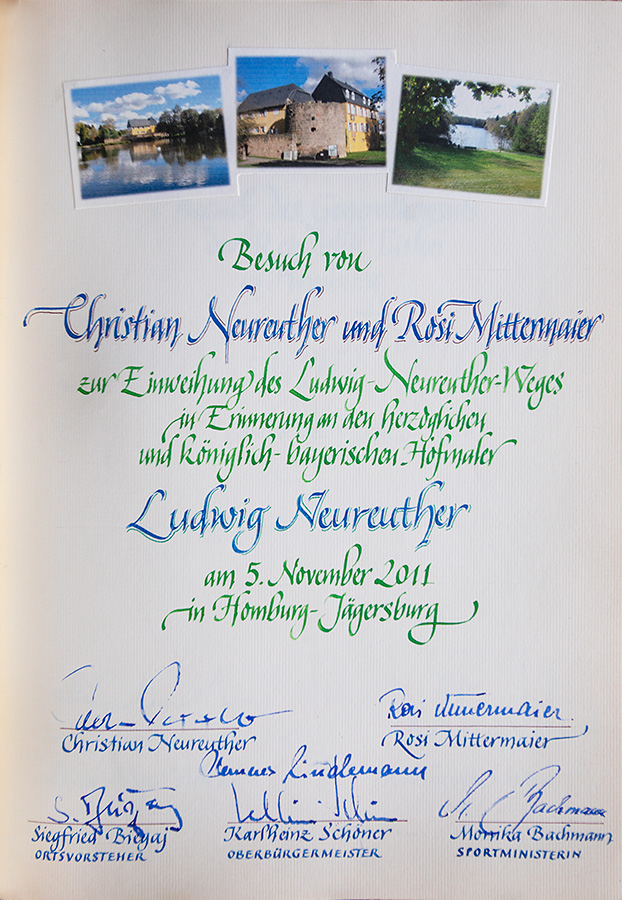 Besuch von
Christian Neureuther und Rosi Mittermaier
zur Einweihung des Ludwig-Neureuther-Weges
in Erinnerung an den herzoglichen
und königlich-bayerischen Hofmaler
Ludwig Neureuther
am 5. November 2011
in Homburg-Jägersburg
Rosi Mittermaier
Christian Neureuther
Rosi Mittermaier
S. Biegaj
Bachmann
Siegfried Biegaj
Karlheinz Schöner
Monika Bachmann
ORTSVORSTEHER
OBERBÜRGERMEISTER
SPORTMINISTERIN